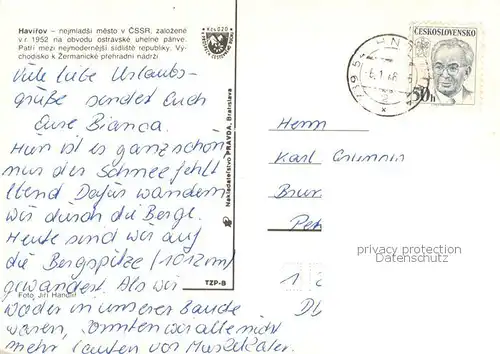 Havířov – nejmladší město v ČSSR, založené
v r. 1952 na obvodu ostravské uhelné pánve.
Patří mezi nejmodernější sídliště republiky. Vý-
chodisko k Žermanické přehradní nádrži.
Viele liebe Urlaubs-
grüße sendet Euch
Eure Bianca.
Hier ist es ganz schön
nur der Schnee fehlt
Dafür wandern
wir durch die Berge.
Heute sind wir auf
die Bergspitze (1012m)
gewandert. Als wir
wieder in unserer Baude
waren, konnten wir alle nicht
mehr laufen vor Muskelkater.
Foto Jiří Handlíř
Nakladatelství PRAVDA, Bratislava
TZP-B
ČESKOSLOVENSKO
50h
Herrn
Karl
privacy protection
Danksammler.de